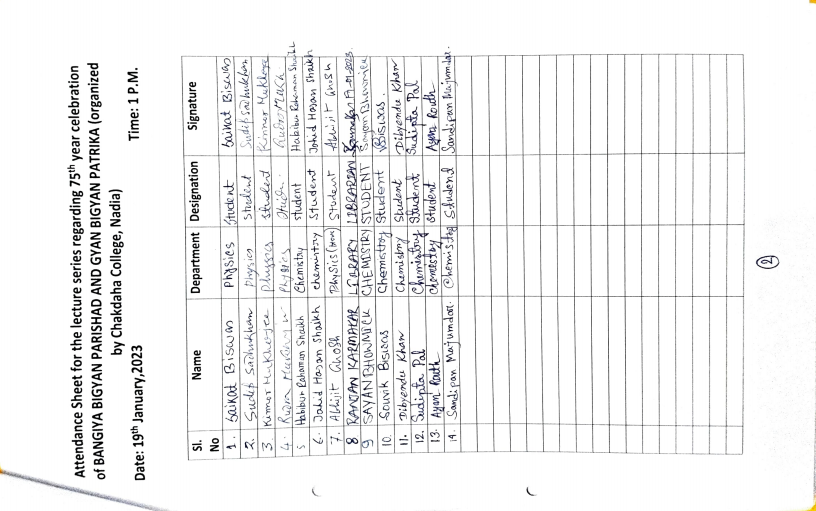 Attendance Sheet for the lecture series regarding 75th year celebration
of BANGIYA BIGYAN PARISHAD AND GYAN BIGYAN PATRIKA (organized
by Chakdaha College, Nadia)
Date: 19th January,2023 Time: 1 P.M.
Sl. No Name Department Designation Signature
1. Saikat Biswas Physics Student Saikat Biswas
2. Sudip Sadhukhan Physics Student Sudip Sadhukhan
3 Kinner Mukherjee Physics Student Kinner Mukherjee
4. Rudra Physics
5 Habibur Rahaman Shaikh Chemistry student Habibur Rahaman Shaikh
6. Jahid Hasan Shaikh chemistry Student Jahid Hasan Shaikh
7. Abhijit Ghosh Physics (Hons) Student Abhijit Ghosh
8 RANJAN KARMAKAR LIBRARY LIBRARIAN 19-01-2023
9 SAYAN BHOWMICK CHEMISTRY STUDENT Sayan Bhowmick
10. Souvik Biswas Chemistry Student SBiswas.
11. Dibyendu Khan Chemistry Student Dibyendu Khan
12. Sudipta Pal Chemistry Student Sudipta Pal
13. Ayan Routh Chemistry Student Ayan Routh
14. Sandipan Majumdar. Chemistry Student Sandipan Majumdar.
2